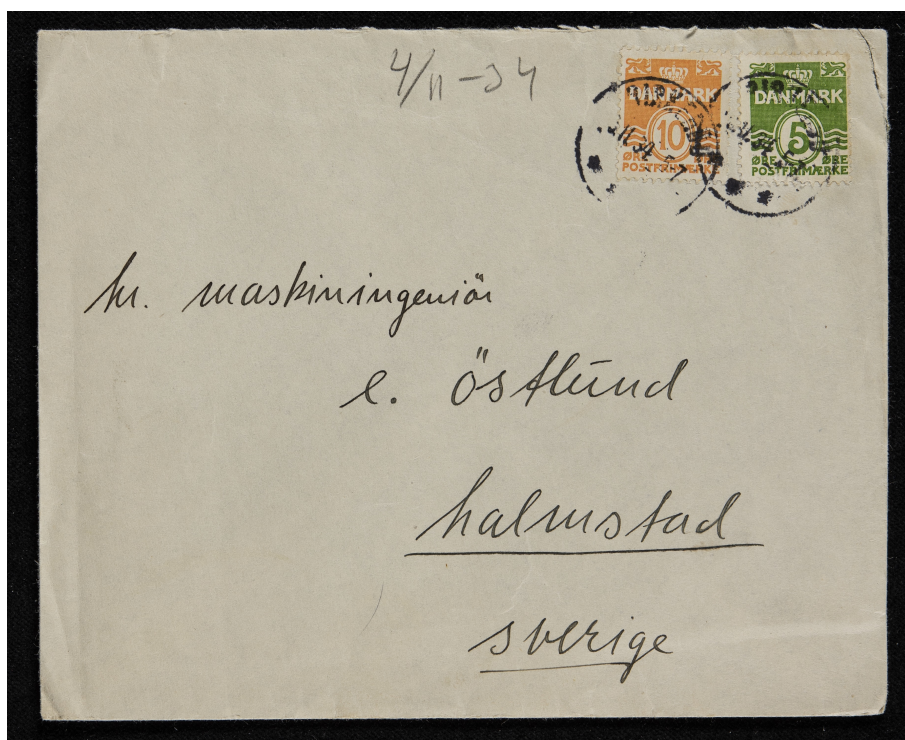 4/11-34
DANMARK
10
ØRE ØRE
POSTFRIMÆRKE
DANMARK
5
ØRE ØRE
POSTFRIMÆRKE
hr. maskiningeniör
e. östlund
halmstad
sverige